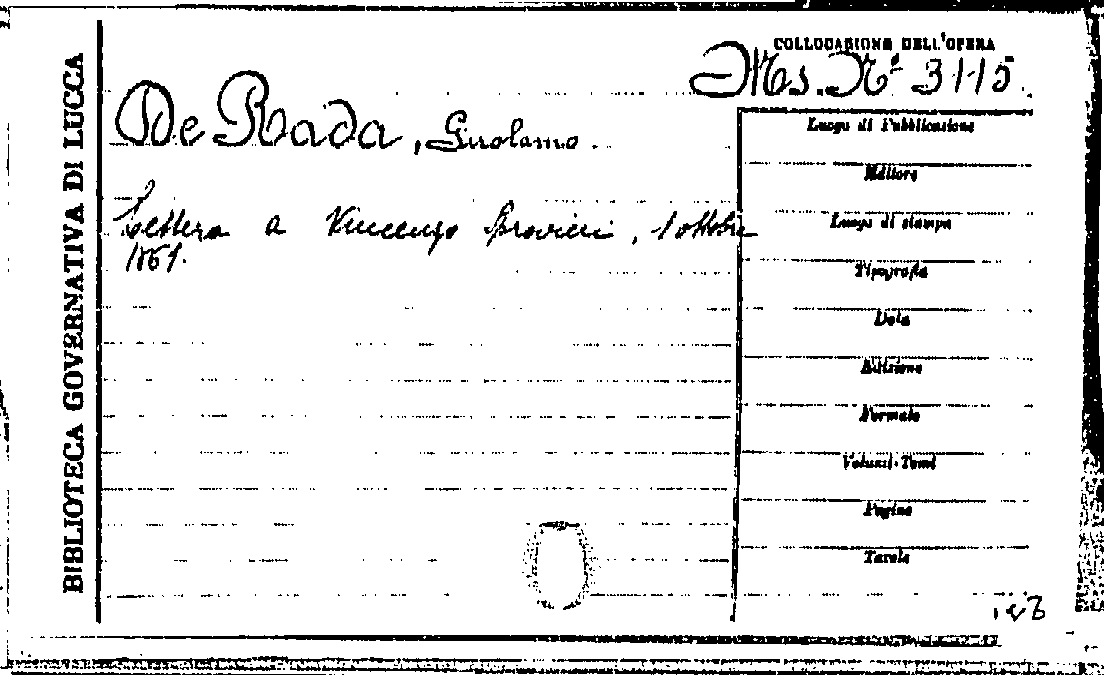 BIBLIOTECA GOVERNATIVA DI LUCCA
COLLOCAZIONE DELL'OPERA
Ms. N° 3115.
De Rada, Girolamo.
Lettera a Vincenzo Provieri, 1 ottobre
1861.
Luogo di Pubblicazione
Editore
Luogo di stampa
Tipografia
Data
Edizione
Formato
Volumi-Tomi
Pagine
Tavole